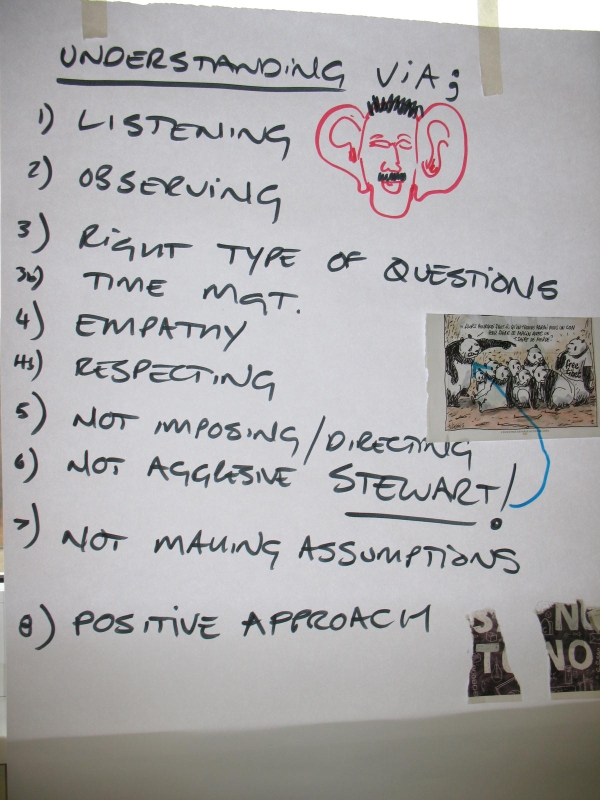 UNDERSTANDING ViA;
1) LISTENING
2) OBSERVING
3) RIGHT TYPE OF QUESTIONS
3b) TIME MGT.
4) EMPATHY
4b) RESPECTING
5) NOT IMPOSING/DIRECTING
6) NOT AGGRESIVE STEWART!
7) NOT MAKING ASSUMPTIONS
8) POSITIVE APPROACH
S NO
T NO